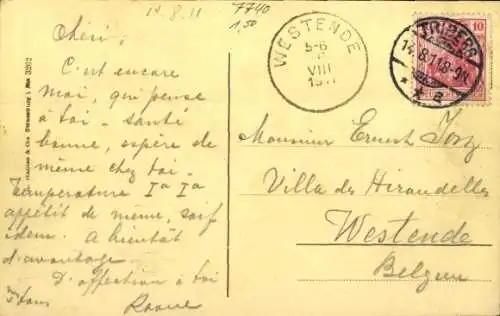 14.8.11
7740
1,50
Chéri,
C'est encore
moi, qui pense
à toi - santé
bonne, espère de
même chez toi.
Température Ia Ia
appétit de même, soif
idem. A bientôt
d'avantage.
D'affection à toi
WESTENDE
5-6
VIII
TRIBERG
14.8.11.8-9N.
* * a
10
Monsieur Ernest
Villa des Hirondelles
Westende
Belgien